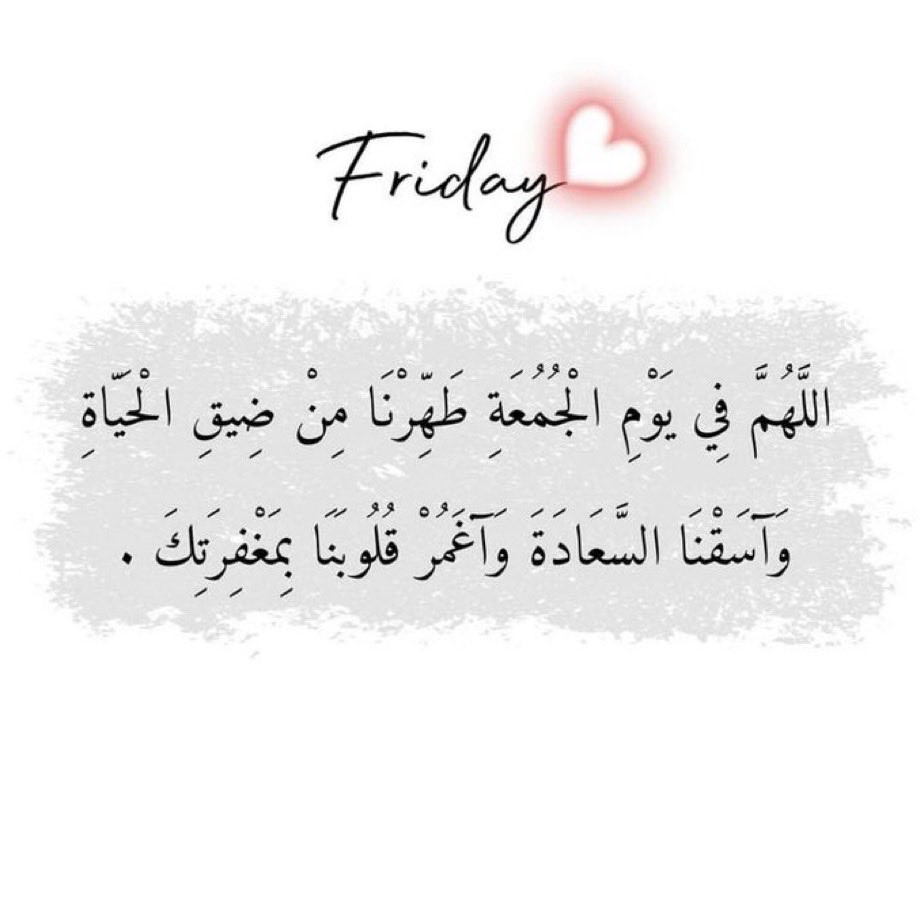 Friday
اللَّهُمَّ فِي يَوْمِ الْجُمُعَةِ طَهِّرْنَا مِنْ ضِيقِ الْحَيَّاةِ
وَآسَقْنَا السَّعَادَةَ وَآغَمُرْ قُلُوبَنَا بِمَغْفِرَتِكَ .